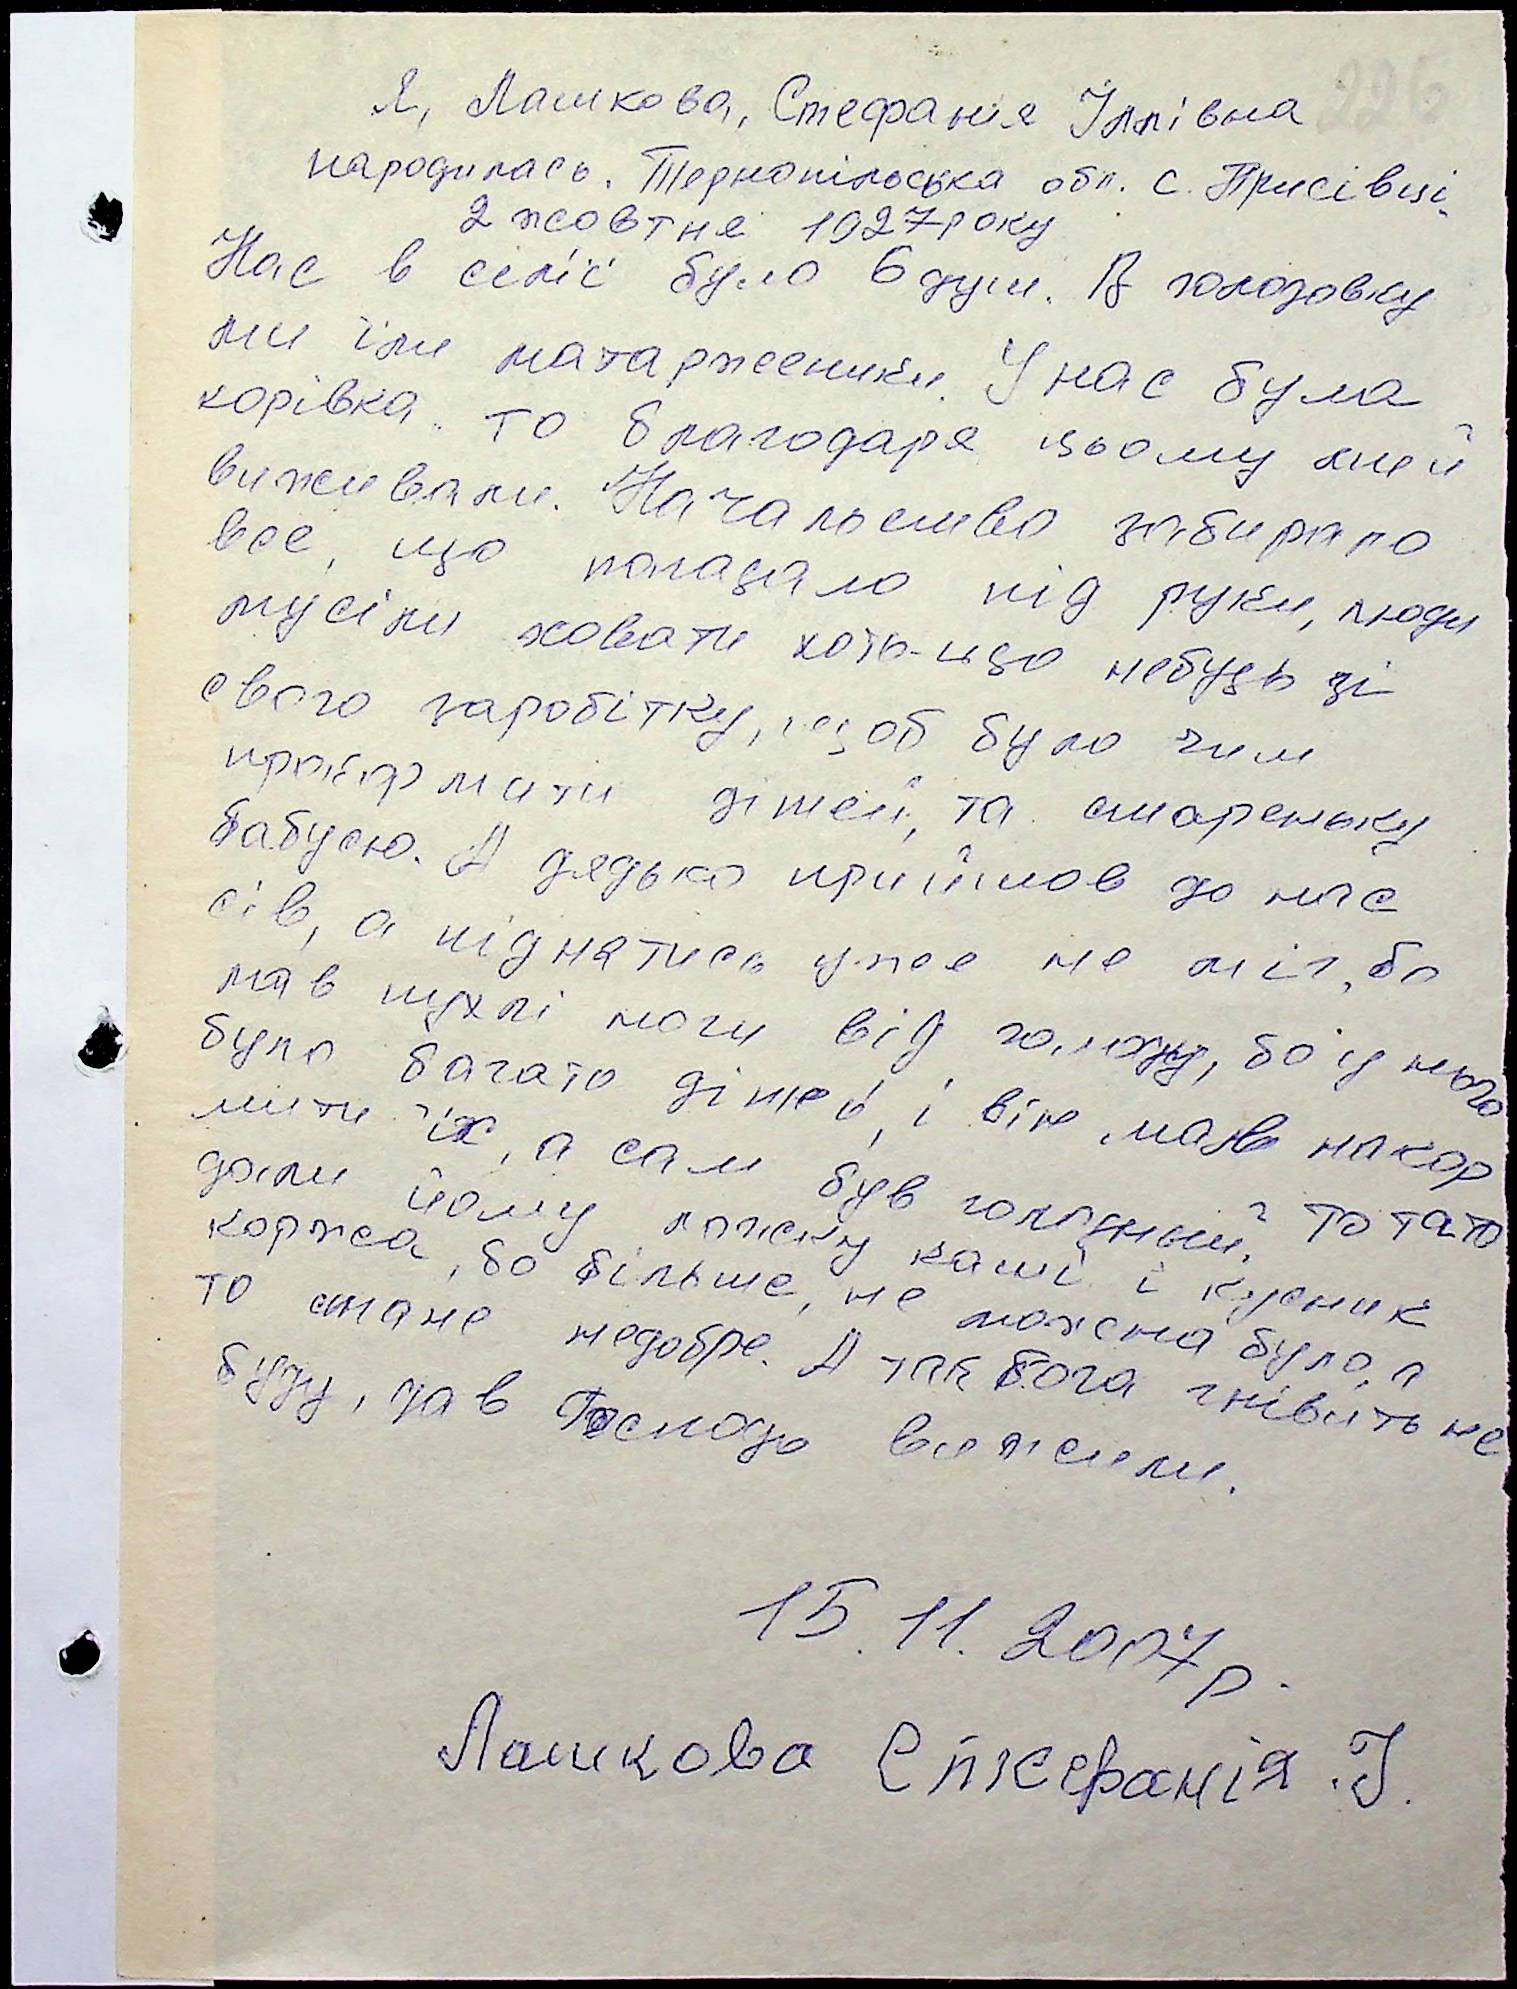 226
Я, Лашкова, Стефанія Іллівна
народилась. Тернопільська обл. с. Присівці.
2 жовтня 1927 року
Нас в сімї було 6 душ. В голодовку
ми їли матарженики. У нас була
корівка. то благодаря цьому ми й
виживали. Начальство забирало
все, що попадало під руки, люди
мусіли ховати хоть-що небудь зі
свого заробітку, щоб було чим
прокормити дітей, та стареньку
бабусю. А дядько прийшов до нас
сів, а піднятись уже не міг, бо
мав пухлі ноги від голоду, бо у нього
було багато дітей, і він мав накор
мити їх, а сам був голодний. То тато
дали йому ложку каші і кусник
коржа, бо більше, не можна було, а
то стане недобре. А так Бога гнівить не
буду, дав Господь вижили.
15.11.2007р.
Лашкова Стефанія .І.